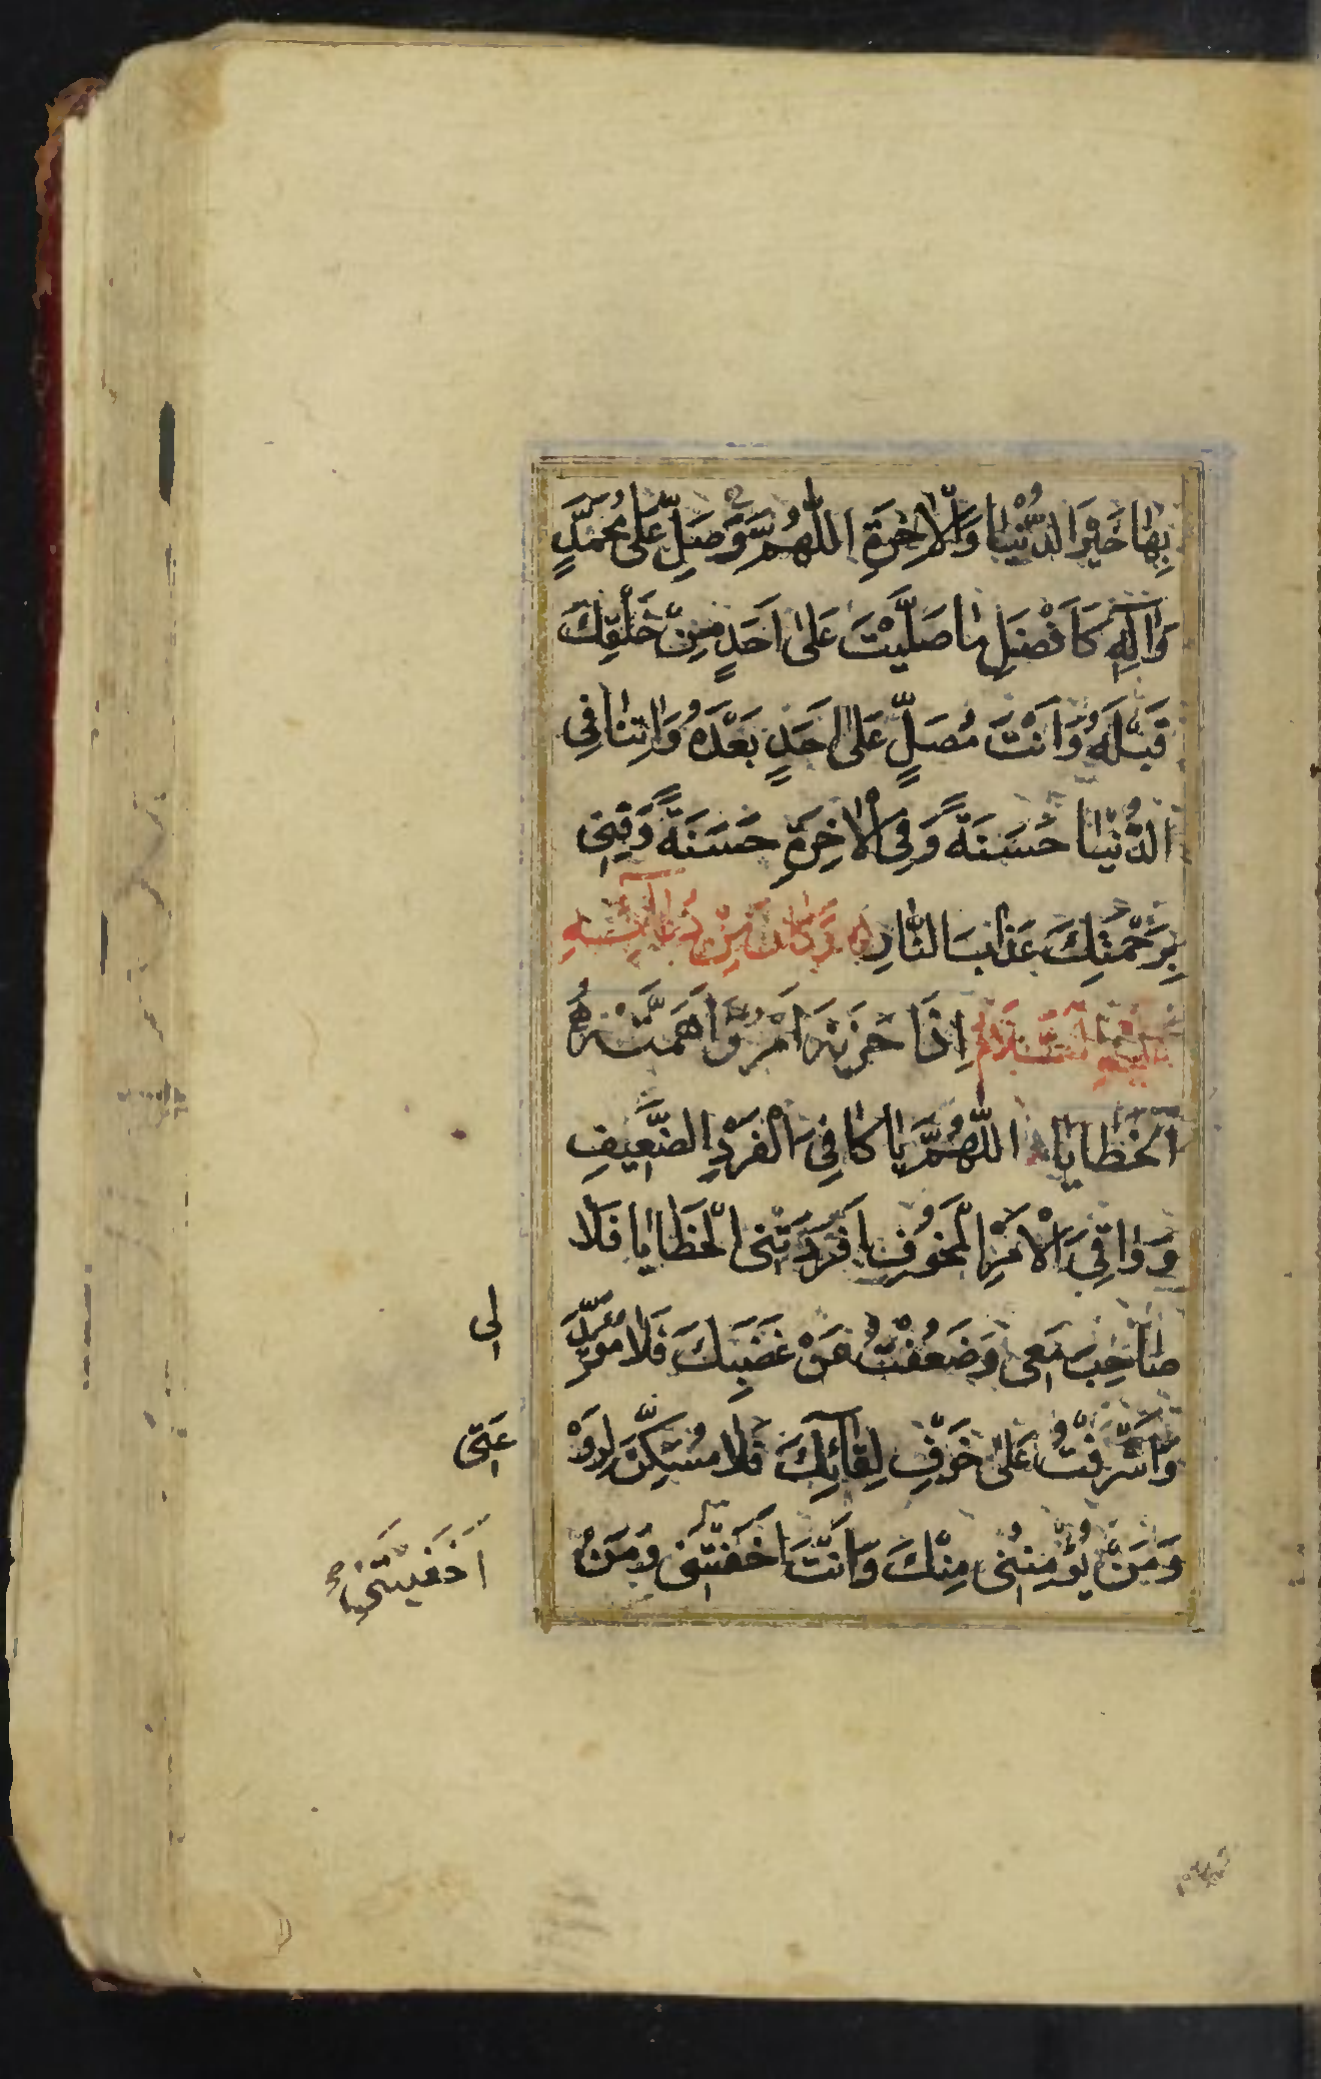 بِهَا خَيْرَ الدُّنْيَا وَالْاٰخِرَةِ اَللّٰهُمَّ وَصَلِّ عَلٰى مُحَمَّدٍ
وَاٰلِهِ كَاَفْضَلِ مَا صَلَّيْتَ عَلٰى اَحَدٍ مِنْ خَلْقِكَ
قَبْلَهُ وَاَنْتَ مُصَلٍّ عَلٰى اَحَدٍ بَعْدَهُ وَاٰتِنَا فِى
الدُّنْيَا حَسَنَةً وَفِى الْاٰخِرَةِ حَسَنَةً وَقِنِى
بِرَحْمَتِكَ عَذَابَ النَّارِ وَكَانَ مِنْ دُعَائِهِ
عَلَيْهِ السَّلَامُ اِذَا حَزَنَهُ اَمْرٌ وَاَهَمَّتْهُ
الْخَطَايَا اَللّٰهُمَّ يَا كَافِىَ الْفَرْدِ الضَّعِيفِ
وَوَاقِىَ الْاَمْرِ الْمَخُوفِ اَفْرَدَتْنِى الْخَطَايَا فَلَا
صَاحِبَ مَعِى وَضَعُفْتُ عَنْ غَضَبِكَ فَلَا مُؤَيِّدَ
لِى
وَاَشْرَفْتُ عَلٰى خَوْفِ لِقَائِكَ فَلَا مُسَكِّنَ لِرَوْ
عَتِى
وَمَنْ يُؤْمِنُنِى مِنْكَ وَاَنْتَ اَخَفْتَنِى وَمَنْ
اَخَفْتَنِى